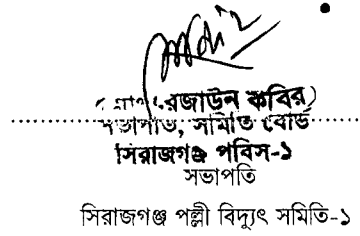 রেজাউন কবির)
সভাপতি, সমিতি বোর্ড
সিরাজগঞ্জ পবিস-১
সভাপতি
সিরাজগঞ্জ পল্লী বিদ্যুৎ সমিতি-১